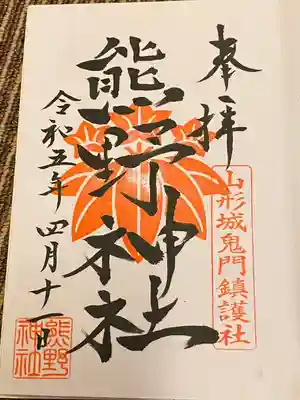 奉拝
山形城鬼門鎮護社
熊野神社
令和五年 四月十一日
熊野
神社